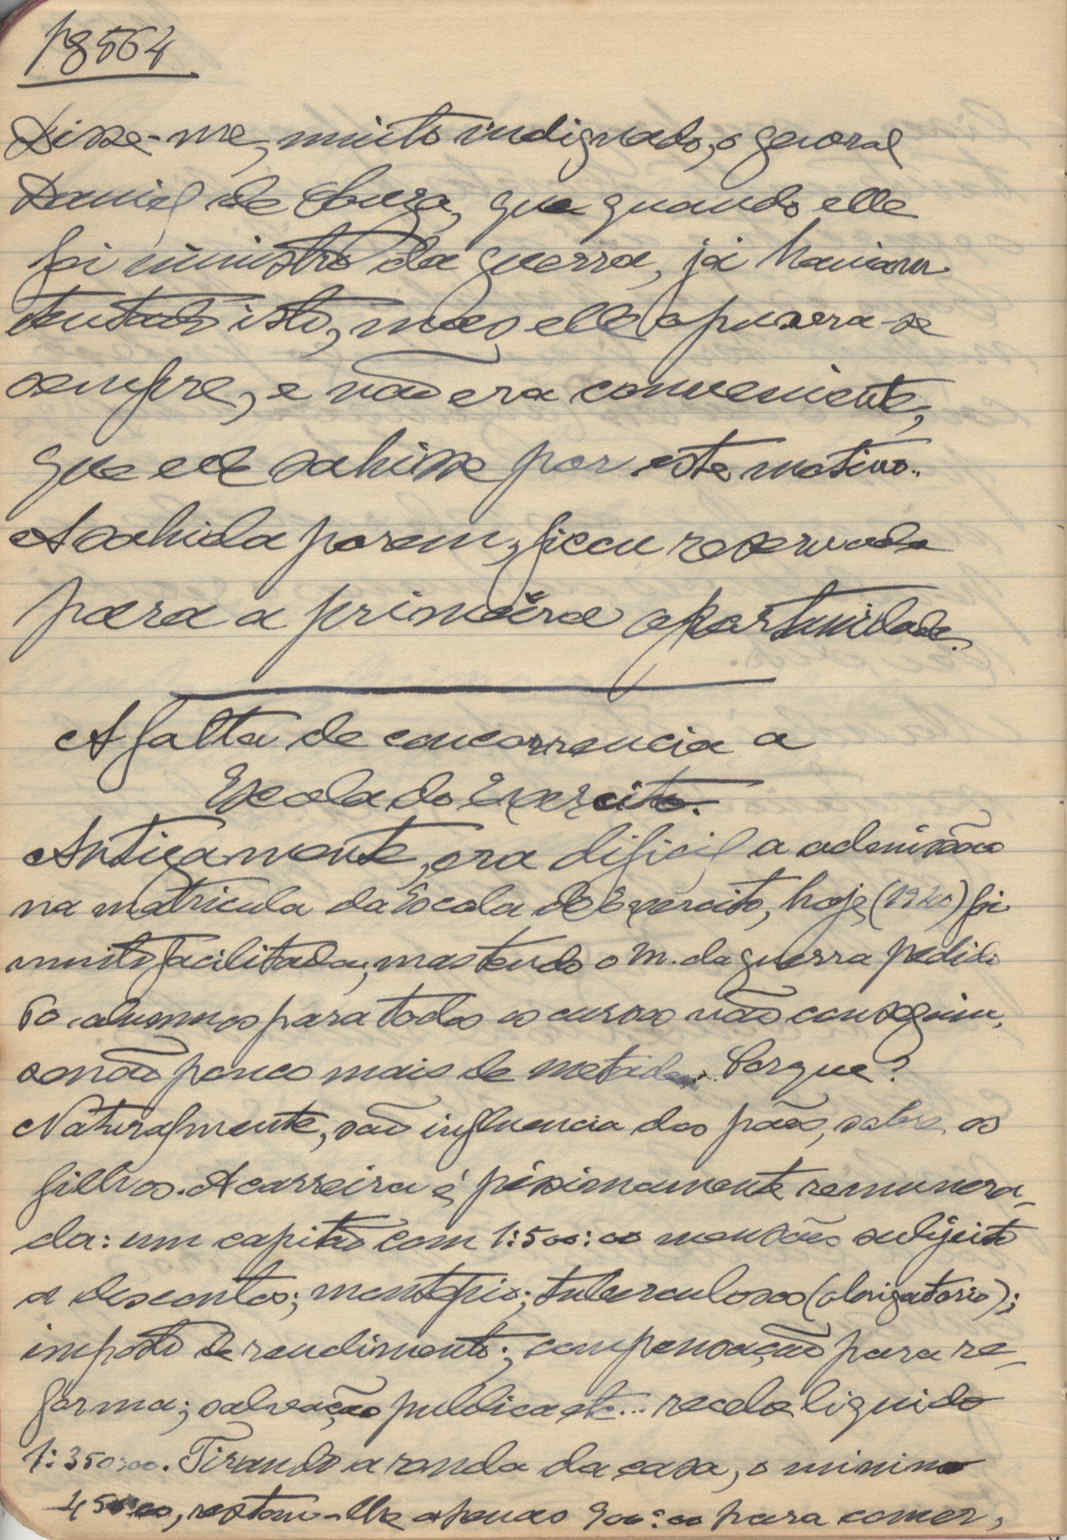 p8564
Disse-me, muito indignado, o general
Daniel de Souza, que quando elle
foi ministro da guerra, já haviam
tentado isto, mas elle opusera-se
sempre, e não era conveniente,
que elle sahisse por este motivo.
A sahida porem, ficou reservada
para a primeira oportunidade.
A falta de concorrencia a
Escola do Exercito.
Antigamente, era dificil a admissão
na matricula da Escola do Exercito, hoje (1940) foi
muito facilitada, mas tendo o M. da guerra pedido
60 alumnos para todos os cursos não conseguiu,
senão pouco mais de metade. Porque?
Naturalmente, são influencia dos paes, sobre os
filhos. A carreira é pessimamente remunera-
da: um capitão com 1:500:00 mensaes subjeito
a descontos; montepio; tuberculosos (obrigatorio);
imposto de rendimento; compensação para re-
forma; salvação publica etc... recebe liquido
1:350:00. Tirando a renda da casa, o minimo
450:00, restam-lhe apenas 900:00 para comer,